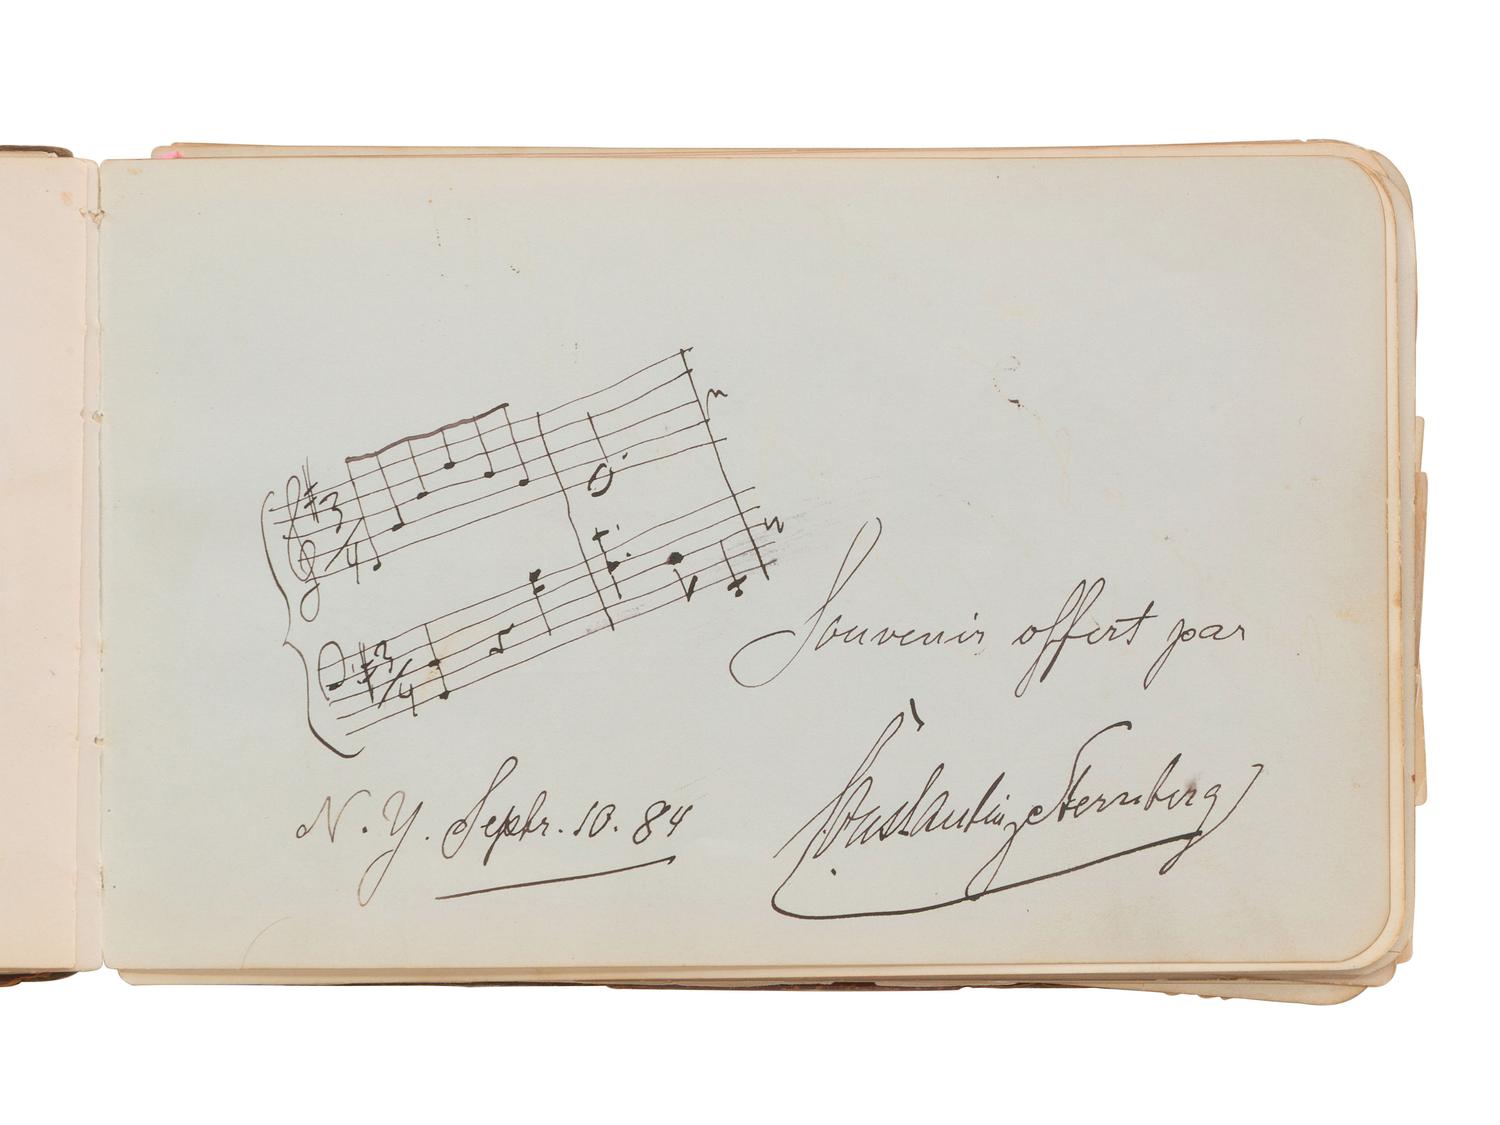 3/4
3/4
Souvenir offert par
Constantin Sternberg
N. Y. Septr. 10. 84